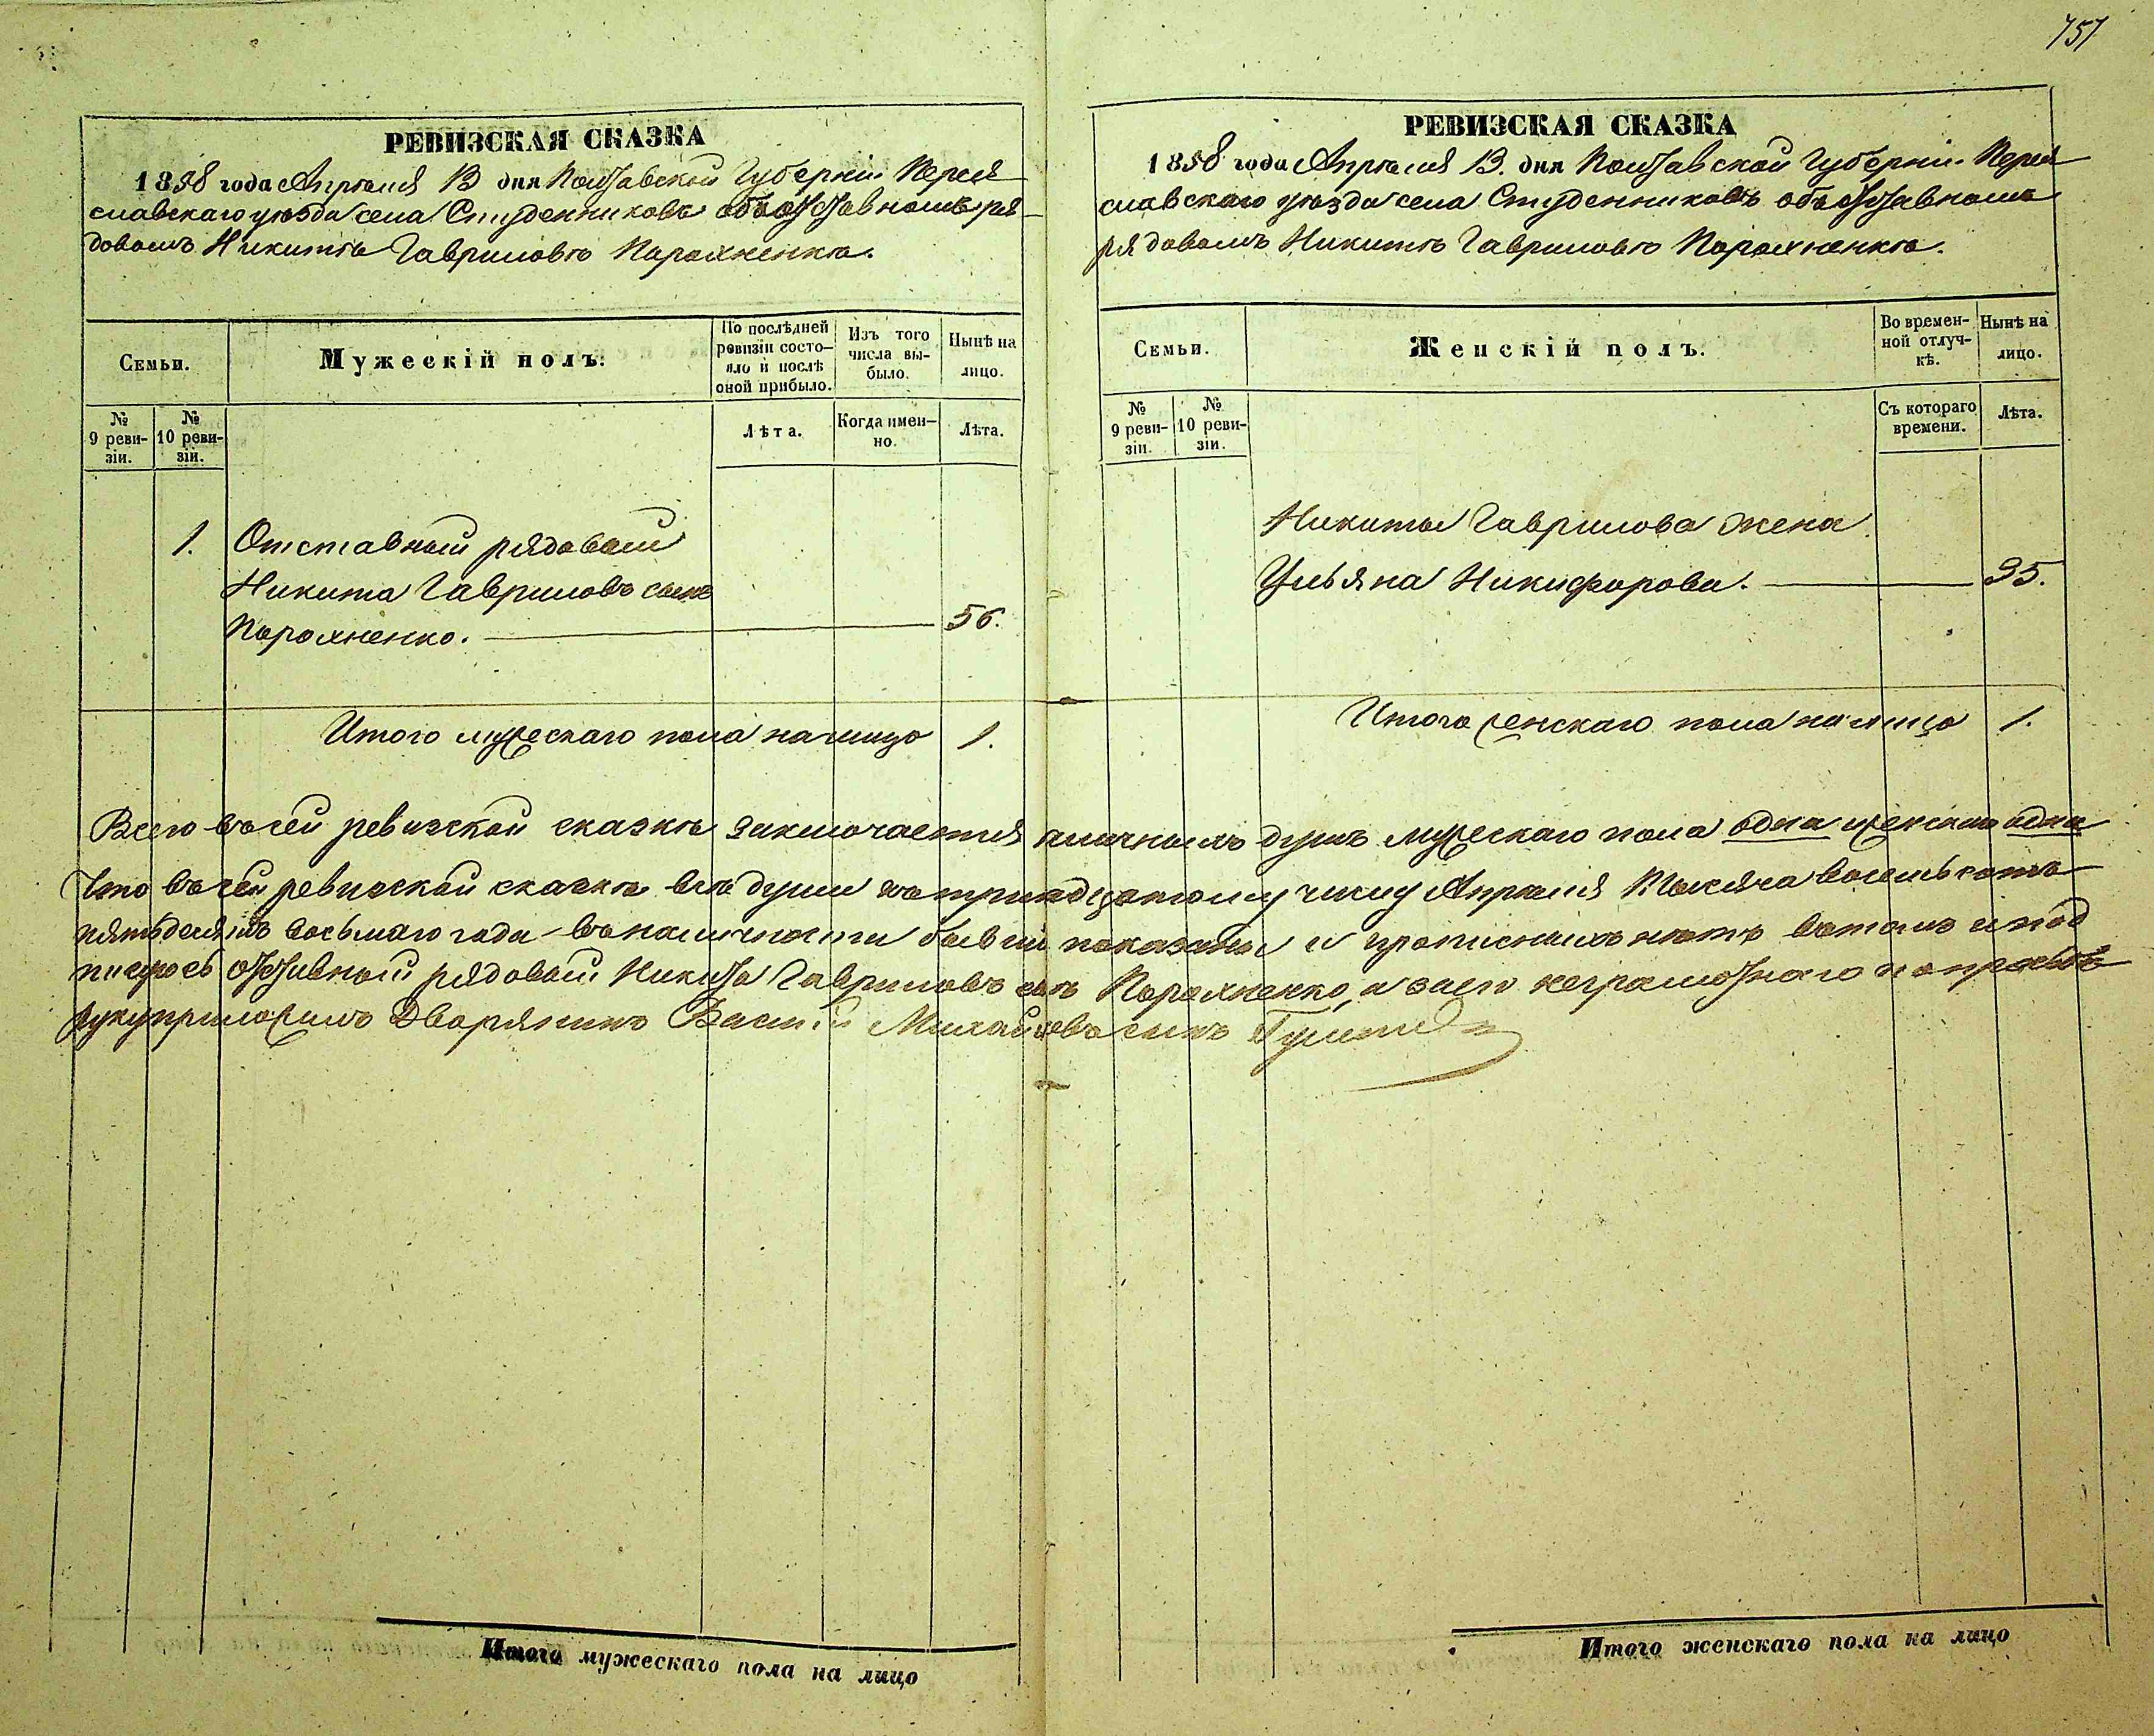 757
РЕВИЗСКАЯ СКАЗКА
1858 года Апрѣля 13 дня Полтавской Губерніи Перея
славскаго уѣзда села Студенниковъ объ отставномъ ря
довомъ Никитѣ Гавриловѣ Порохненкѣ.
Семьи.
Мужескій полъ.
По послѣдней ревизіи состо-
яло и послѣ оной прибыло.
Изъ того числа вы-
было.
Нынѣ на лицо.
№ 9 реви-
зіи.
№ 10 реви-
зіи.
Лѣта.
Когда имен-
но.
Лѣта.
1. Отставный рядовый
Никита Гавриловъ сынъ
Порохненко. 56.
Итого мужескаго пола на лицо 1.
РЕВИЗСКАЯ СКАЗКА
1858 года Апрѣля 13. дня Полтавской Губерніи Перея
славскаго уѣзда села Студенниковъ объ отставномъ
рядовомъ Никитѣ Гавриловѣ Порохненкѣ.
Семьи.
Женскій полъ.
Во времен-
ной отлуч-
кѣ.
Нынѣ на лицо.
№ 9 реви-
зіи.
№ 10 реви-
зіи.
Съ котораго времени.
Лѣта.
Никиты Гаврилова жена
Ульяна Никифорова. 35.
Итого женскаго пола на лицо 1.
Всего въ сей ревизской сказкѣ заключается наличныхъ душъ мужескаго пола одна женскаго одна
Что въ сей ревизской сказкѣ всѣ души къ тринадцатому числу Апрѣля Тысяча восемьсотъ
пятьдесятъ восьмаго года въ наличности бывшія показаны и прописныхъ нѣтъ въ томъ и под
писуюсь отставный рядовый Никита Гавриловъ сынъ Порохненко, а за его неграмотнаго по прозьбѣ
руку приложилъ Дворянинъ Василій Михайловъ сынъ
Итого мужескаго пола на лицо
Итого женскаго пола на лицо